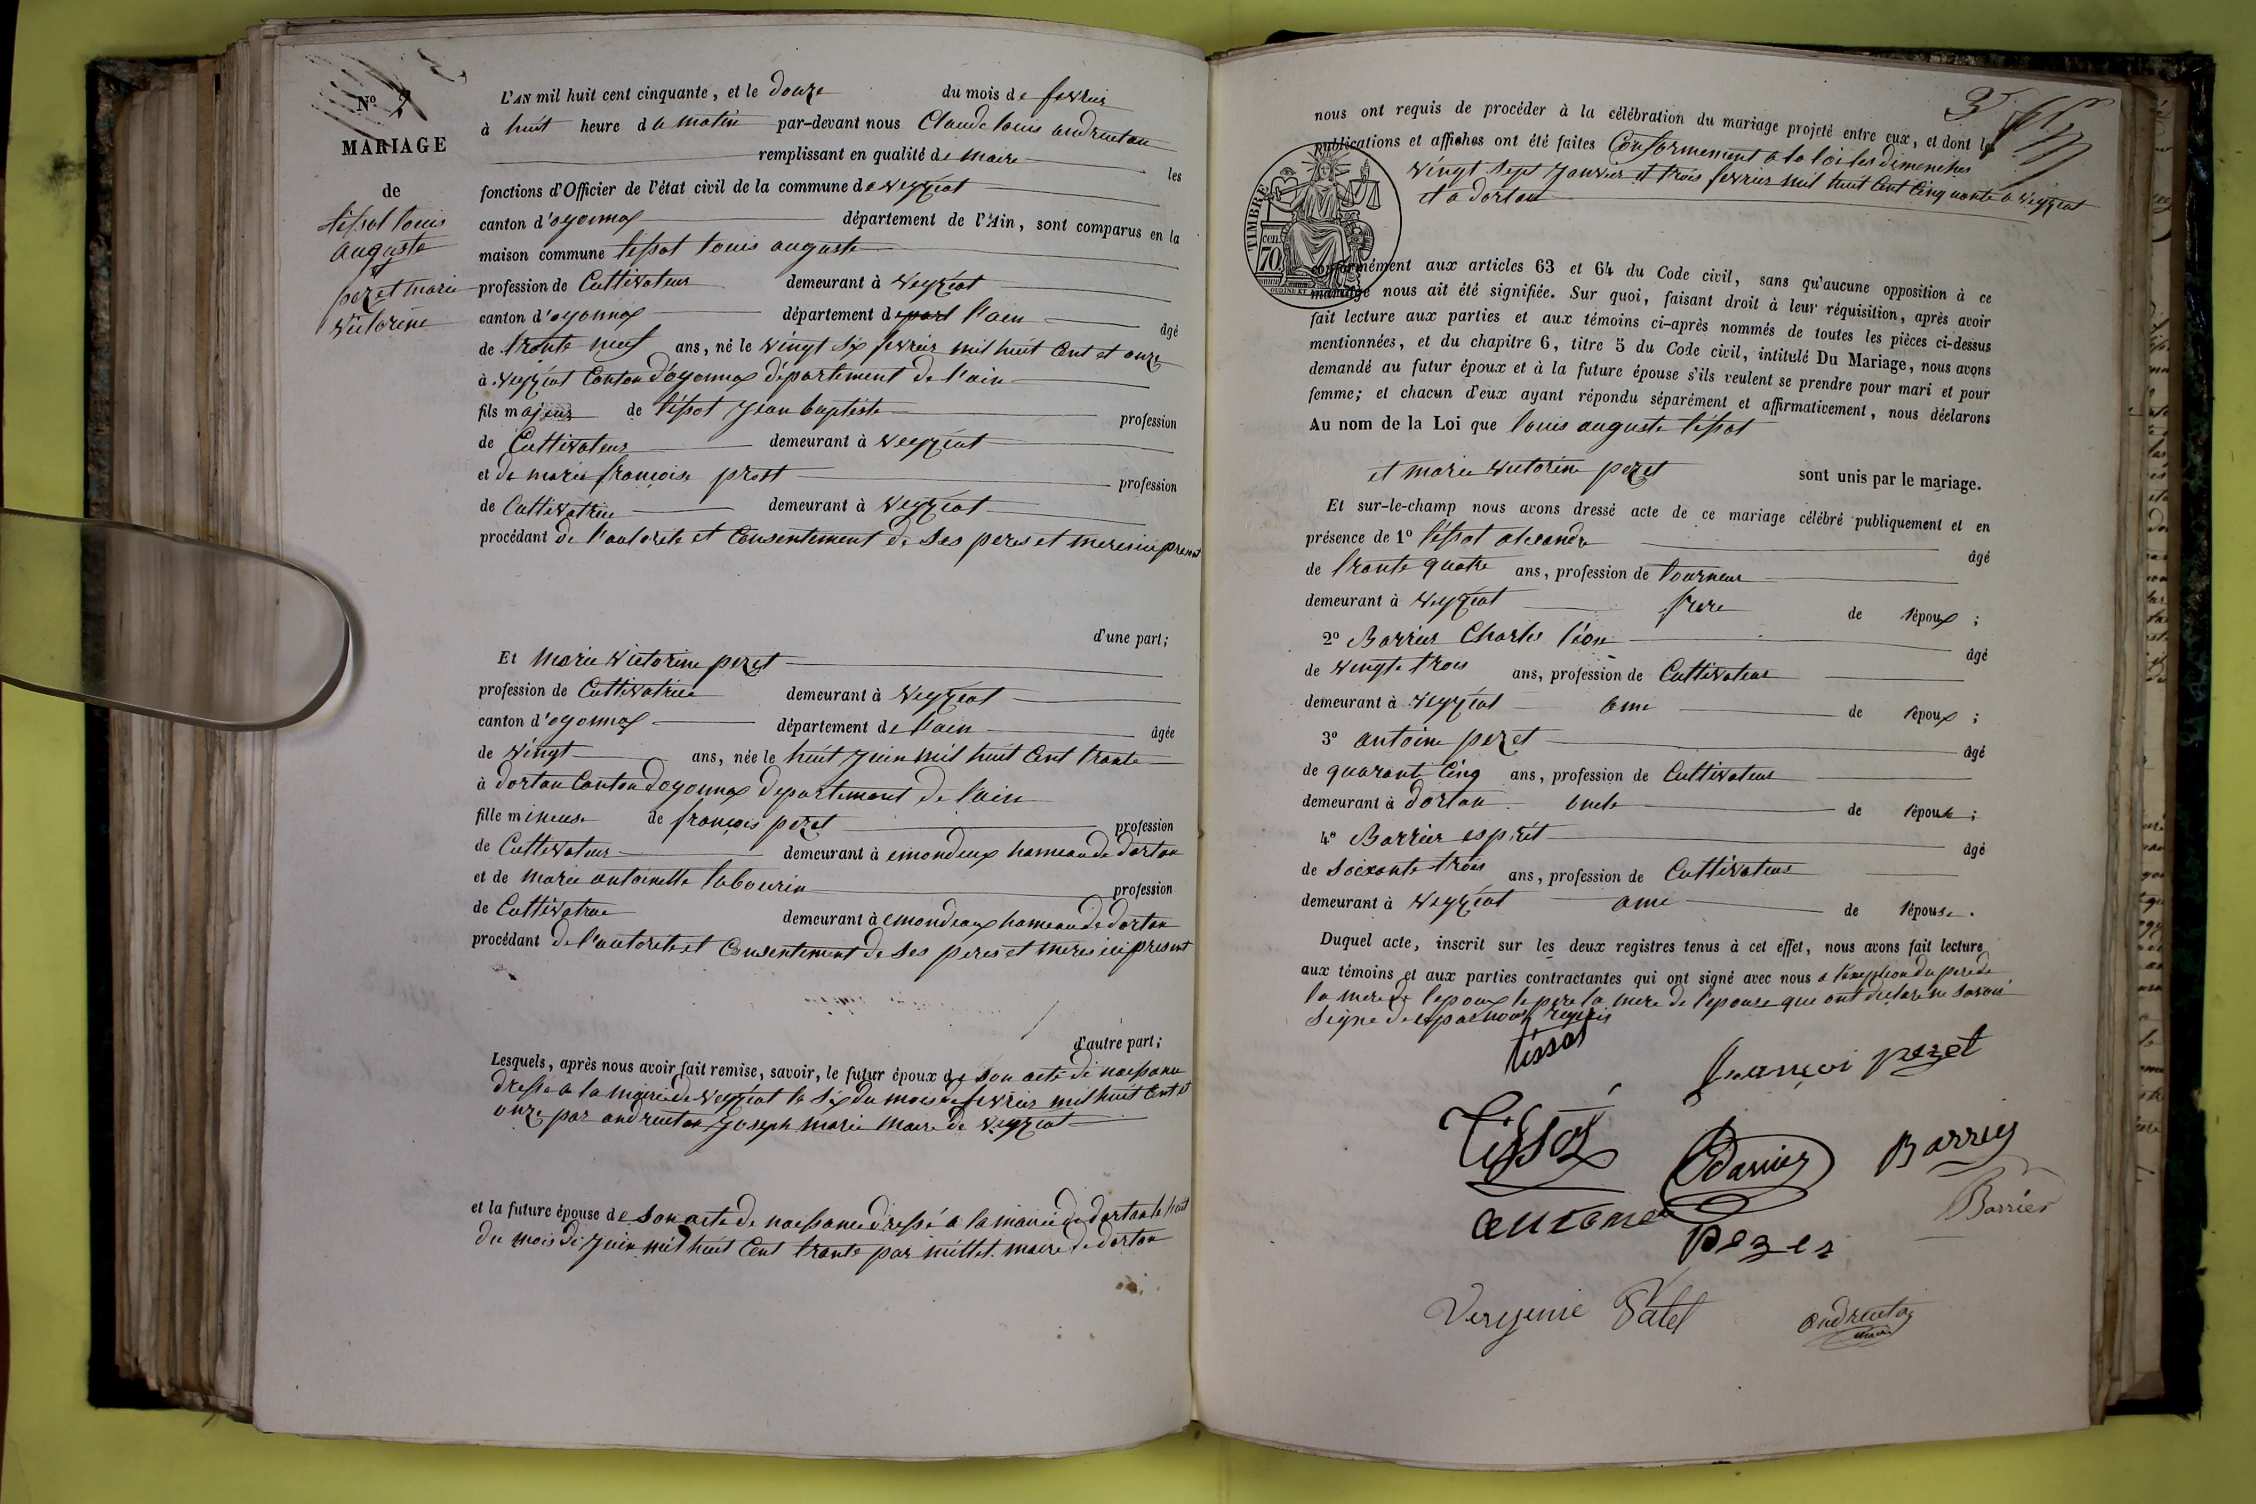 N.º 2
MARIAGE
de
tissot louis
auguste
&
pezet marie
victorine
L'AN mil huit cent cinquante, et le douze du mois de fevrier
à huit heure du matin par-devant nous Claude louis andruetan
remplissant en qualité de maire les
fonctions d'Officier de l'état civil de la commune de veyziat
canton d'oyonnax département de l'Ain, sont comparus en la
maison commune tissot louis auguste
profession de Cultivateur demeurant à veyziat
canton d'oyonnax département de l'ain âgé
de trante neuf ans, né le vingt six fevrier mil huit Cent et onze
à veyziat Canton d'oyonnax département de l'ain
fils majeur de tissot jean baptiste profession
de Cultivateur demeurant à veyziat
et de marie françoise prost profession
de Cultivatrice demeurant à veyziat
procédant de l'autorite et Consentement de Ses peres et meres ici present
d'une part;
Et Marie victorine pezet
profession de Cultivatrice demeurant à veyziat
canton d'oyonnax département de l'ain âgée
de vingt ans, née le huit juin mil huit Cent trante
à dortan Canton d'oyonnax departement de l'ain
fille mineure de françois pezet profession
de Cultivateur demeurant à emondeux hameau de dortan
et de marie antoinette tabourin profession
de Cultivatrice demeurant à emondeaux hameau de dortan
procédant de l'autorite et Consentement de Ses peres et meres ici present
d'autre part;
Lesquels, après nous avoir fait remise, savoir, le futur époux de son acte de naissance
dressé a la mairie de veyziat le Six du mois de fevrier mil huit Cent et
onze par andruetan joseph marie maire de veyziat
et la future épouse de son acte de naissance dressé a la mairie de dortan le huit
du mois de juin mil huit Cent trante par millet maire de dortan
nous ont requis de procéder à la célébration du mariage projeté entre eux, et dont les
publications et affiches ont été faites Conformement a la loi les dimenches
vingt Sept janvier et trois fevrier mil huit Cent Cinquante a veyziat
et a dortan
TIMBRE
cen.
70
conformément aux articles 63 et 64 du Code civil, sans qu'aucune opposition à ce
mariage nous ait été signifiée. Sur quoi, faisant droit à leur réquisition, après avoir
fait lecture aux parties et aux témoins ci-après nommés de toutes les pièces ci-dessus
mentionnées, et du chapitre 6, titre 5 du Code civil, intitulé Du Mariage, nous avons
demandé au futur époux et à la future épouse s'ils veulent se prendre pour mari et pour
femme; et chacun d'eux ayant répondu séparément et affirmativement, nous déclarons
Au nom de la Loi que louis auguste tissot
et marie victorine pezet sont unis par le mariage.
Et sur-le-champ nous avons dressé acte de ce mariage célébré publiquement et en
présence de 1º tissot alexandre âgé
de trante quatre ans, profession de tourneur
demeurant à veyziat frere de l'époux ;
2º Barrier Charles léon âgé
de vingte trois ans, profession de Cultivateur
demeurant à veyziat ami de l'époux ;
3º antoine pezet âgé
de quarante Cinq ans, profession de Cultivateur
demeurant à dortan oncle de l'épouse ;
4º Barrier esprit âgé
de soixante trois ans, profession de Cultivateur
demeurant à veyziat ami de l'épouse.
Duquel acte, inscrit sur les deux registres tenus à cet effet, nous avons fait lecture
aux témoins et aux parties contractantes qui ont signé avec nous a l'exeption du pere de
la mere de l'epoux le pere la mere de l'epouse que ont declare ne savoir
signe de ce par nous requis
tissot
françoi pezet
Tissot
Barrier
Barrier
antoine
pezet
Vergenie Patel
andruetan
maire